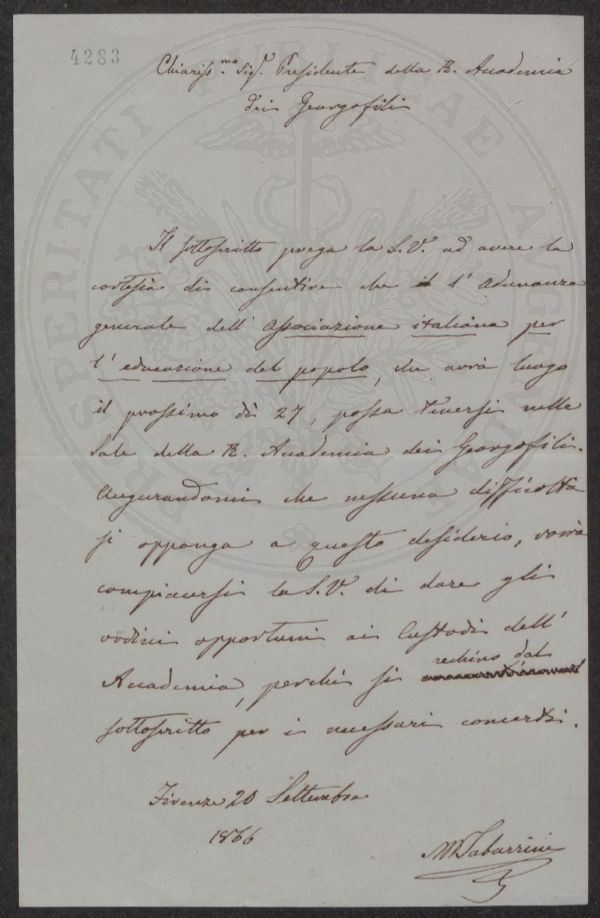 4283
Chiariss.mo Sig.r Presidente della R. Accademia
dei Georgofili
PROSPERITATI PUBLICAE AUGENDAE
Il sottoscritto prega la S.V. ad avere la
cortesia di consentire che il l'adunanza
generale dell'Associazione italiana per
l'educazione del popolo, che avrà luogo
il prossimo dì 27, possa tenersi nelle
Sale della R. Accademia dei Georgofili.
Augurandomi che nessuna difficoltà
si opponga a questo desiderio, vorrà
compiacersi la S.V. di dare gli
ordini opportuni ai Custodi dell'
Accademia, perchè si rechino dal
sottoscritto per i necessari concerti.
Firenze 20 Settembre
1866
M Tabarrini